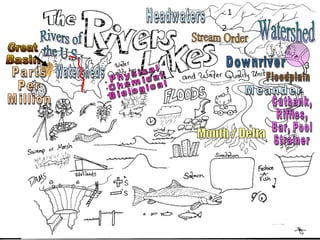 The
Rivers
Lakes
and Water Quality Unit
Headwaters
1
2
Stream Order
Watershed
Great
Basin
Rivers of
the U.S.
Watersheds
Water
Parts
Per
Million
Physical
Chemical
Biological
Downriver
Floodplain
Meander
FLOODS
Cutbank,
Riffles,
Bar, Pool
Strainer
Mouth / Delta
Swamp or Marsh
Wetlands
DAMS
+'s
-'s
Salmon
Simulation
Fish